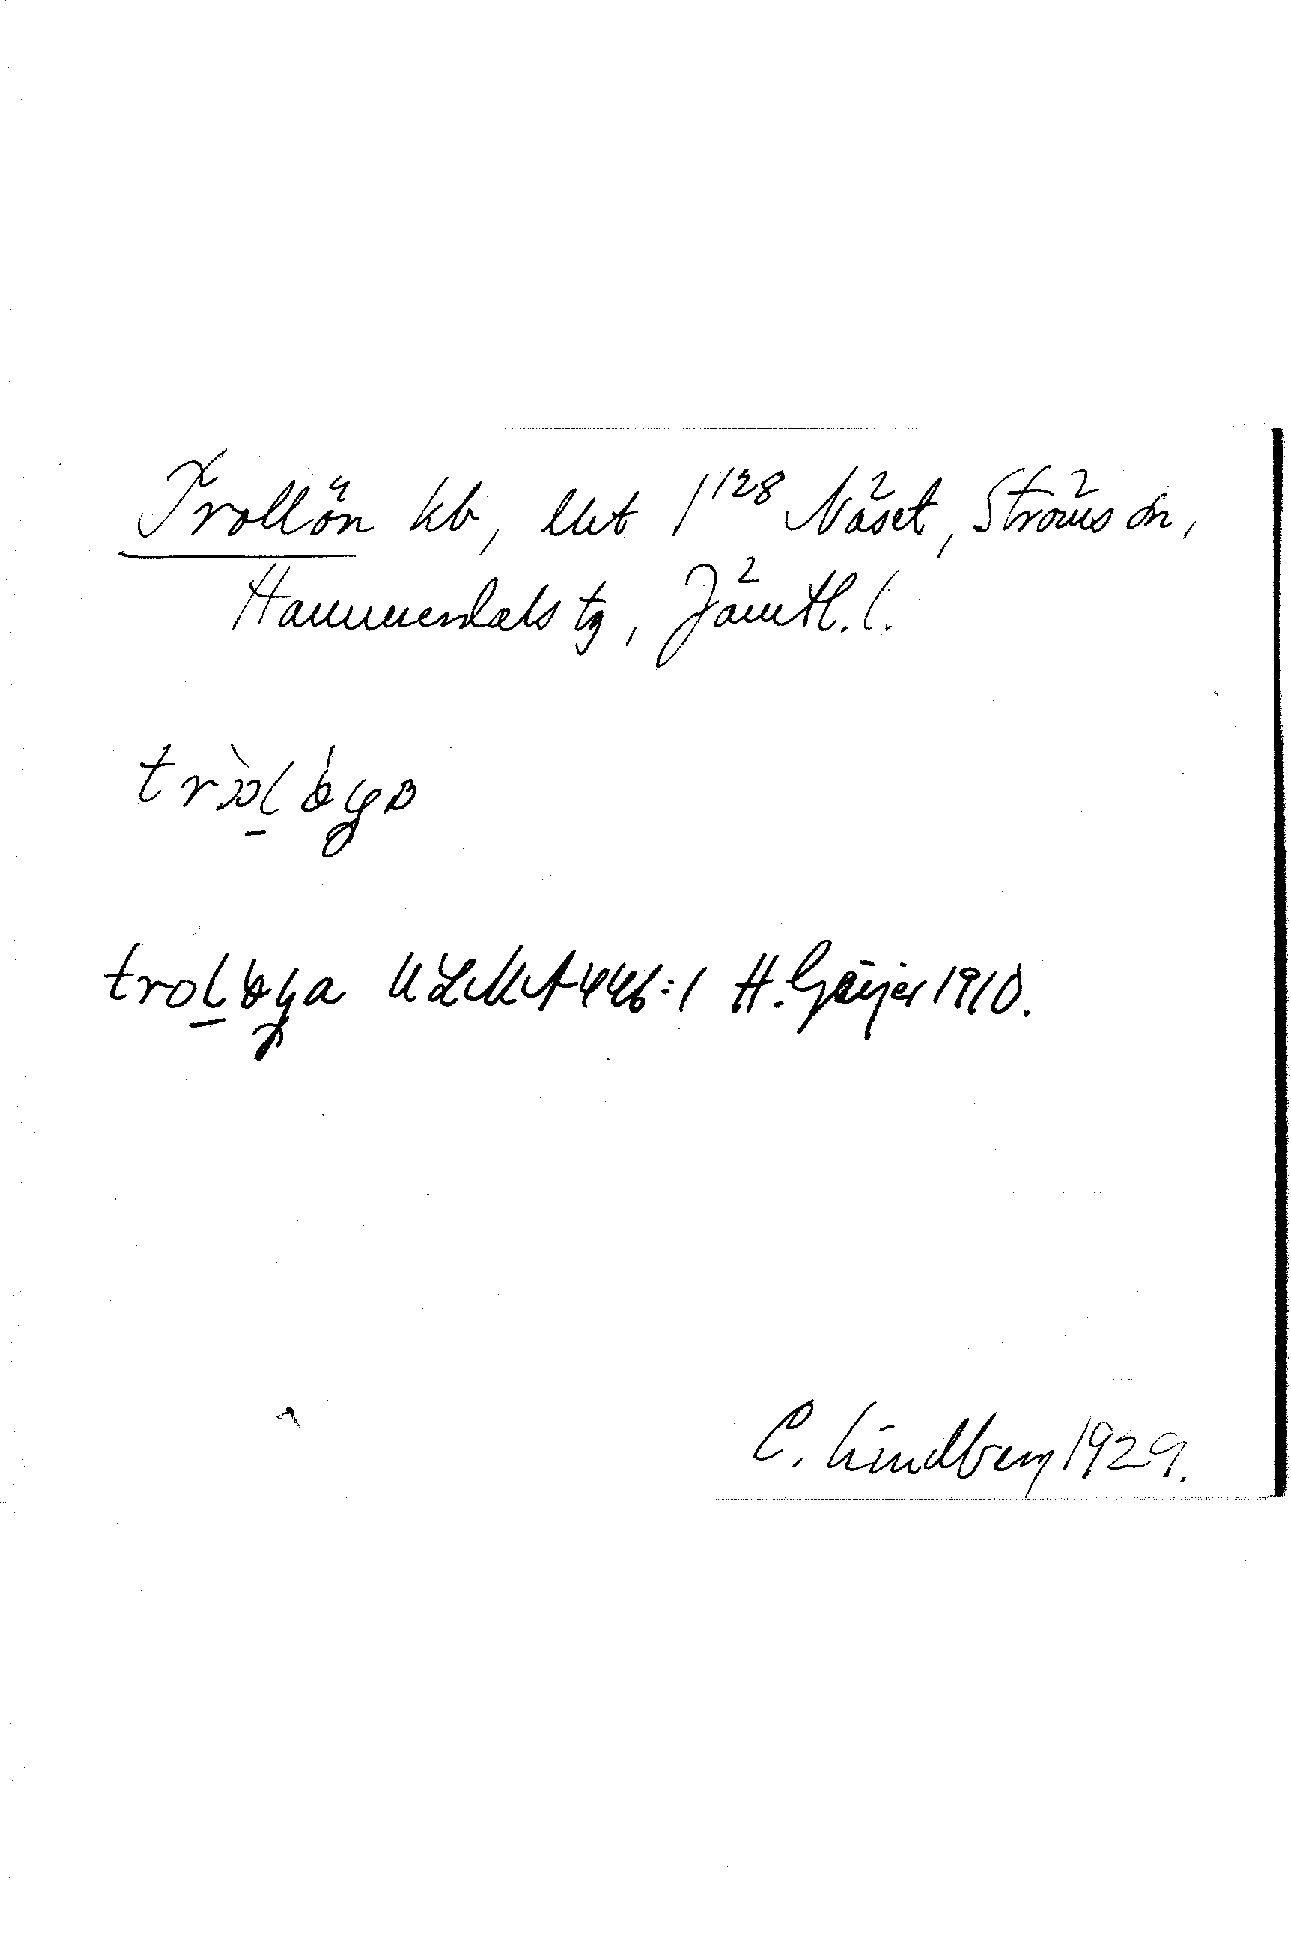 Trollön kb, lht 1¹²⁸ Näset, Ströms sn,
Hammerdals tg, Jämtl. l.
ULMA 446:1 H. Geijer 1910.
C. Lindberg 1929.